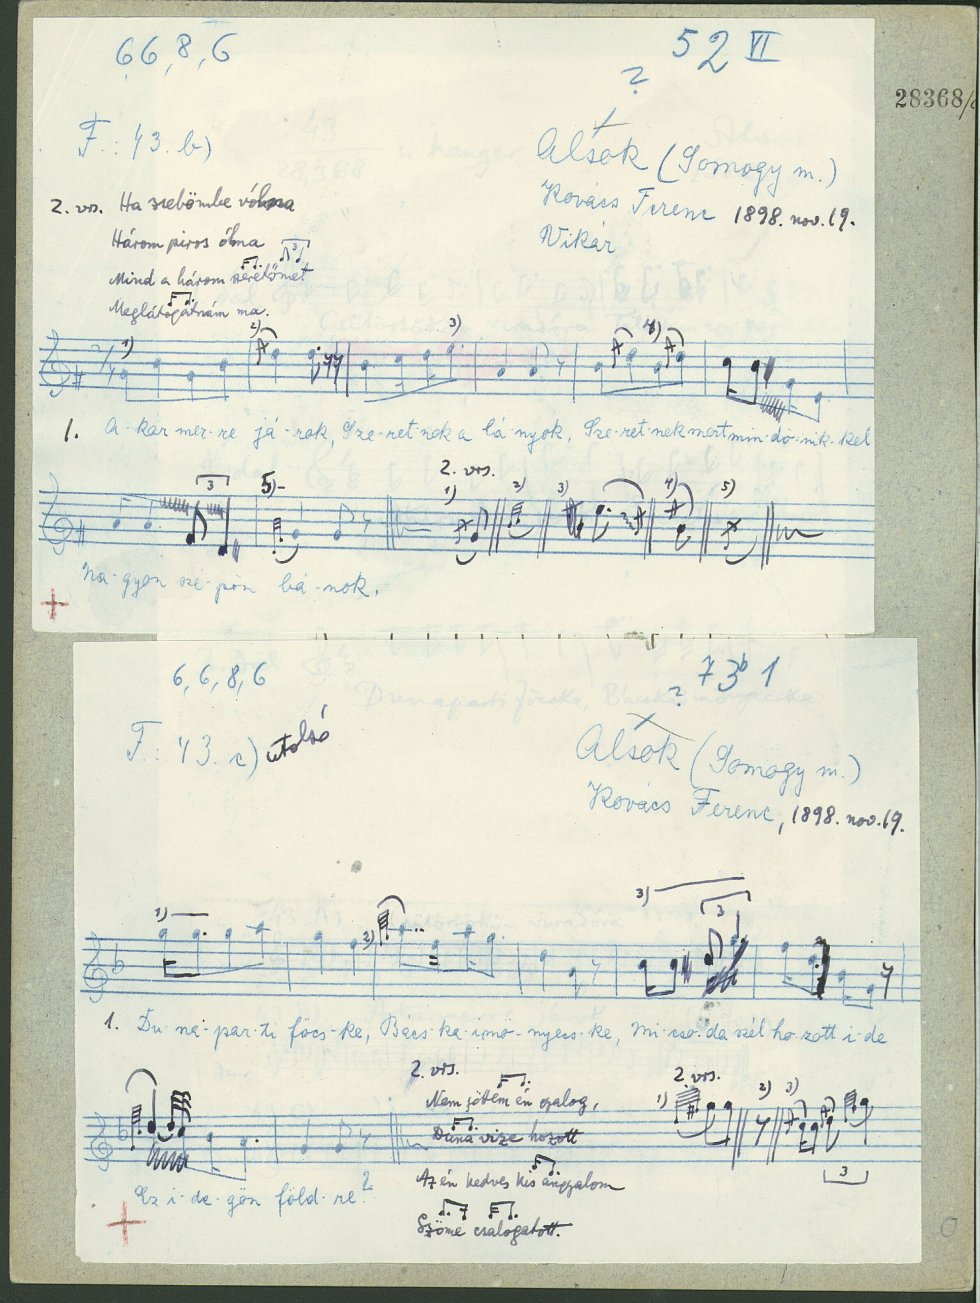 6,6,8,6
52 VI
?
28368/
F.: 43. b)
Alsok (Somogy m.)
Kovács Ferenc 1898. nov. 19.
Vikár
2. vrs. Ha szebömbe vóna
Három piros óma
Mind a három szeretőmet
Meglátogatnám ma.
1) 2) 3) 4)
2/4
1. A-kár mer-re já-rok, Sze-ret-nek a lá-nyok, Sze-ret-nek mert min-dö-nik-kel
3 5)
2. vrs.
1) 2) 3) 4) 5)
Na-gyon szé-pön bá-nok.
+
6,6,8,6
73b 1
?
F.: 43. c) utolsó
Alsok (Somogy m.)
Kovács Ferenc, 1898. nov. 19.
1) 2) 3) 3
1. Du-na-par-ti föcs-ke, Bács-ka-i mo-nyecs-ke, Mi-cso-da szél ho-zott i-de
2. vrs.
Nem jöttem én gyalog,
Duna vize hozott
Az én kedves kis angyalom
Szöme csalogatott.
2. vrs.
1) 2) 3)
3
Ez i-de-gön föld-re?
+